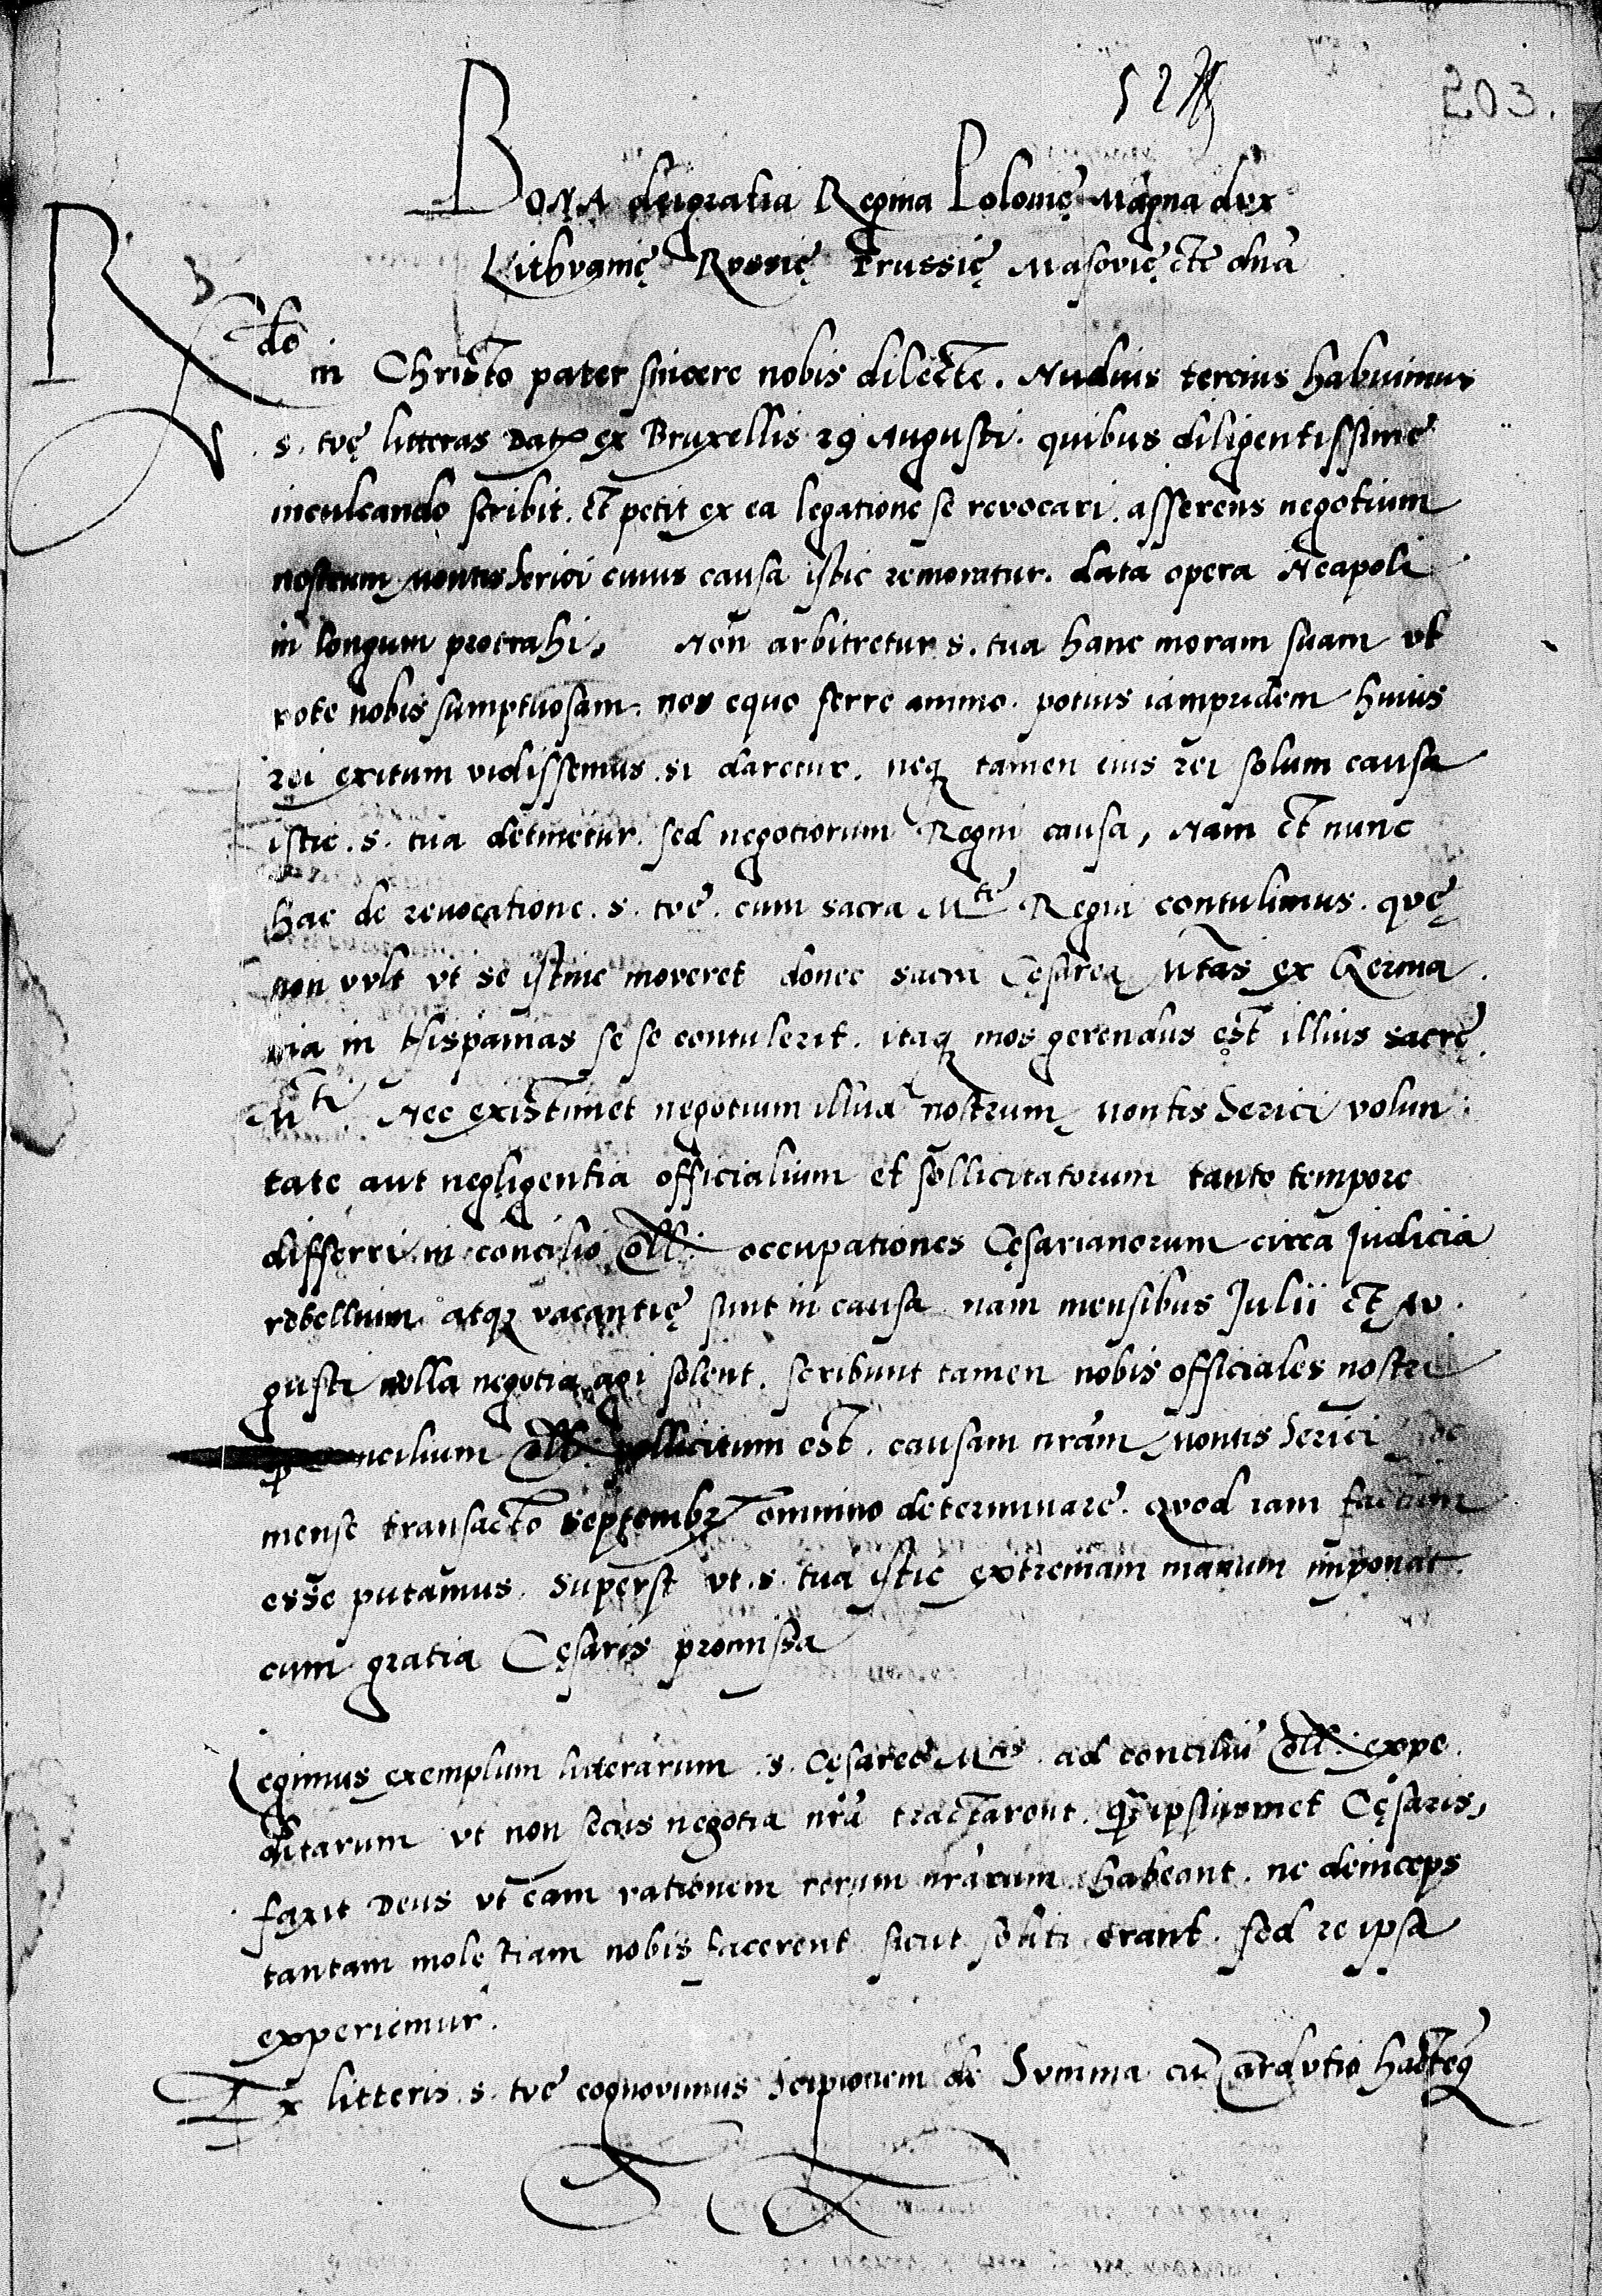 203.
BONA dei gratia Regina Polonię Magna dux
Lithvanię Rvssię Prussię Masovię etc dna
Rdo in Christo pater sincere nobis dilecte. Nudius tercius habuimus
s. tvę litteras Dat ex Bruxellis 29 Augusti. quibus diligentissime
inculcando scribit. et petit ex ea legatione se revocari. asserens negotium
nostrum Montis Serici cuius causa istic remoratur. data opera Neapoli
in longum protrahi. Non arbitretur s. tua hanc moram suam vt
pote nobis sumptuosam. nos equo ferre animo. potius iampridem huius
rei exitum vidissemus. si daretur. neq tamen eius rei solum causa
istic. s. tua detinetur. sed negotiorum Regni causa, Nam et nunc
hac de revocatione. s. tvę. cum sacra Mte Regia contulimus. qvę
non vvlt vt se istinc moveret donec sacra Cęsarea Mtas ex Germa
nia in Hispanias se se contulerit. itaq mos gerendus est illius sacrę
Mti. Nec existimet negotium illud nostrum Montis Serici volun
tate aut negligentia officialium et sollicitatorum tanto tempore
differri. in concilio Coll. occupationes Cęsarianorum circa judicia
rebellium atq vacantię sunt in causa. nam mensibus Julii et Au
gusti nulla negotia agi solent. scribunt tamen nobis officiales nostri
ncilium Coll. pollicitum est. causam nram Montis Serici hoc
mense transacto Septembr omnino determinare. qvod iam factum
esse putamus. Superst vt. s. tua istic extremam manum imponat.
cum gratia Cęsaris promissa
Legimus exemplum litterarum. s. Cęsareę Mtis. ad conciliu Coll. expe
ditarum vt non secus negotia nra tractarent. q ipsiusmet Cęsaris,
faxit Deus vt eam rationem rerum nrarum habeant. ne deinceps
tantam molestiam nobis facerent sicut soliti erant. sed re ipsa
experiemur.
Ex litteris. s. tvę cognovimus Scipionem de Summa cu Cardutio hacteq